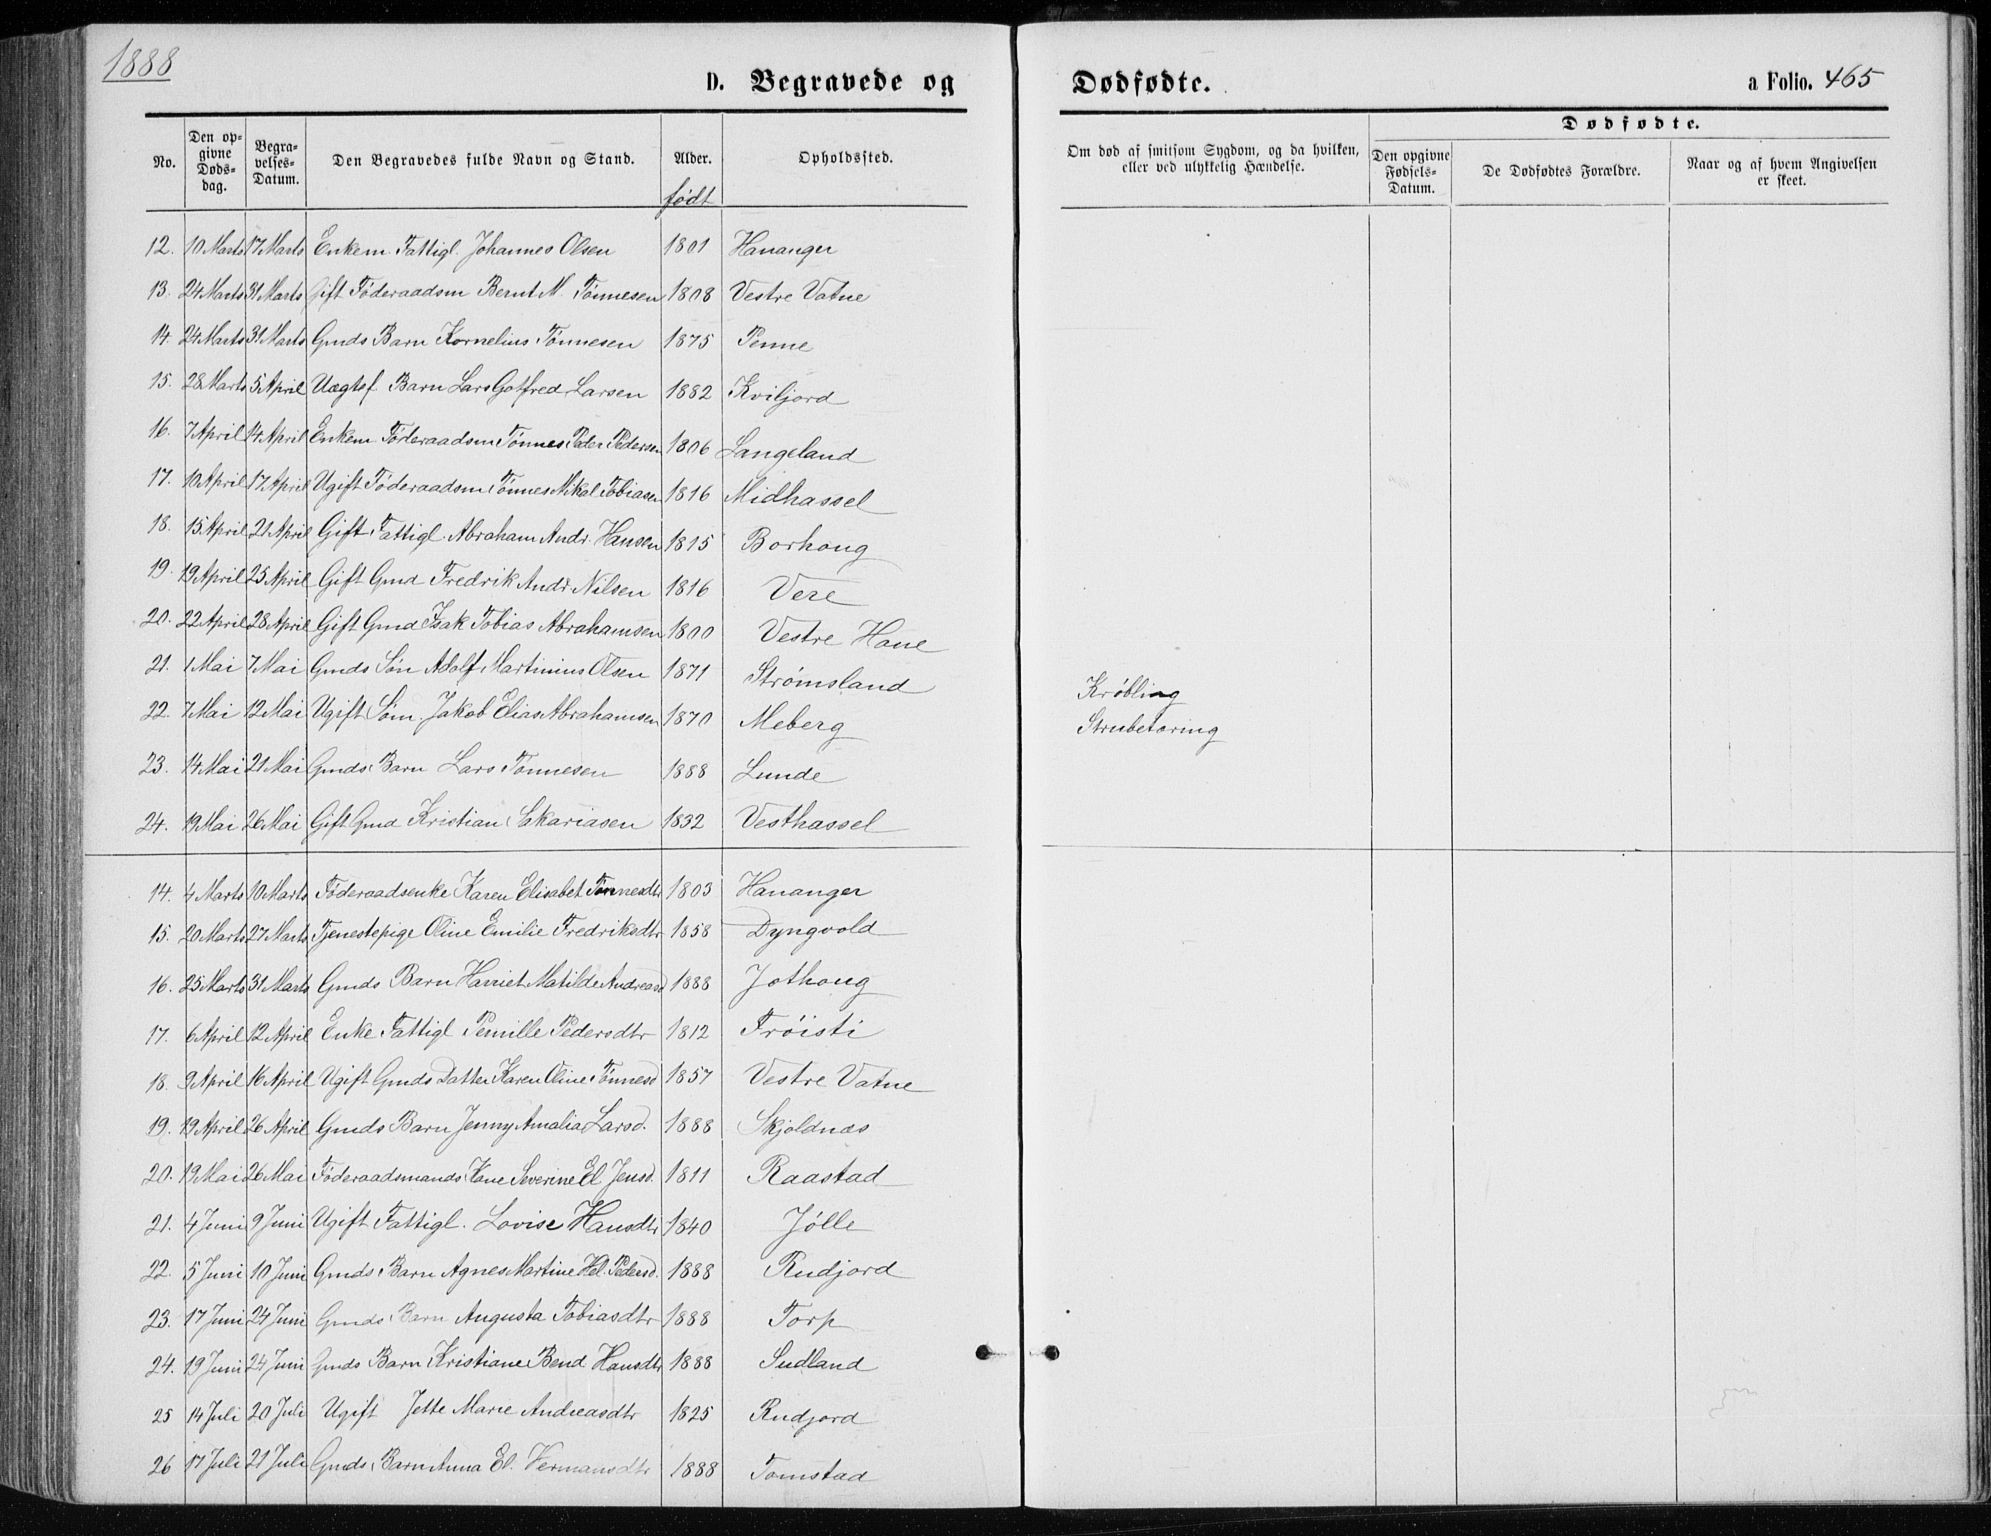 1888
D. Begravede og Dødfødte. a Folio. 465
No. Den opgivne Dødsdag. Begravelses-Datum. Den Begravedes fulde Navn og Stand. Alder. født Opholdssted. Om død af smitsom Sygdom, og da hvilken, eller ved ulykkelig Hændelse. Dødfødte. Den opgivne Fødsels-Datum. De Dødfødtes Forældre. Naar og af hvem Angivelsen er skeet.
12. 10 Marts 17 Marts Enkem. Fattigl. Johannes Olsen 1801 Hananger
13. 24 Marts 31 Marts Gift Föderaadsm Bernt M. Tönnesen 1808 Vestre Vatne
14. 24 Marts 31 Marts Gmds Barn Kornelius Tönnesen 1875 Penne
15. 28 Marts 5 April Uægtef. Barn Lars Gotfred Larsen 1882 Kviljord
16. 7 April 14 April Enkem Föderaadsm Tönnes Peder Pedersen 1806 Langeland
17. 10 April 17 April Ugift Föderaadsm Tönnes Mikal Tobiasen 1816 Midhassel
18. 15 April 21 April Gift Fattigl. Abraham Andr. Hansen 1815 Borhoug
19. 19 April 25 April Gift Gmd Fredrik Andr Nilsen 1816 Vere
20. 22 April 28 April Gift Gmd Isak Tobias Abrahamsen 1800 Vestre Hane
21. 1 Mai 7 Mai Gmds Søn Adolf Martinius Olsen 1871 Strømsland Krøbling
22. 7 Mai 12 Mai Ugift Søm. Jakob Elias Abrahamsen 1870 Meberg Strubetæring
23. 14 Mai 21 Mai Gmds Barn Lars Tønnesen 1888 Lunde
24. 19 Mai 26 Mai Gift Gmd Kristian Sakariasen 1832 Vesthassel
14. 4 Marts 10 Marts Föderaadsenke Karen Elisabet Tønnesdtr 1803 Hananger
15. 20 Marts 27 Marts Tjenestepige Oline Emilie Fredriksdtr 1858 Dyngvold
16. 25 Marts 31 Marts Gmds Barn Harriet Matilde Andreasd 1888 Jothoug
17. 6 April 12 April Enke Fattigl Pernille Pedersdtr 1812 Fröisti
18. 9 April 16 April Ugift Gmds Datter Karen Oline Tönnesd 1857 Vestre Vatne
19. 19 April 26 April Gmds Barn Jenny Amalia Larsd. 1888 Skjoldnæs
20. 19 Mai 26 Mai Föderaadsmands Kone Severine El Jensd. 1811 Raastad
21. 4 Juni 9 Juni Ugift Fattigl. Lovise Hansdtr 1840 Jølle
22. 5 Juni 10 Juni Gmds Barn Agnes Martine Hel. Pedersd. 1888 Rudjord
23. 17 Juni 24 Juni Gmds Barn Augusta Tobiasdtr 1888 Torp
24. 19 Juni 24 Juni Gmds Barn Kristiane Bend Hansdtr 1888 Sudland
25 14 Juli 20 Juli Ugift Jette Marie Andreasdtr 1825 Rudjord
26 17 Juli 21 Juli Gmds Barn Anna El. Vermansdtr 1888 Tomstad